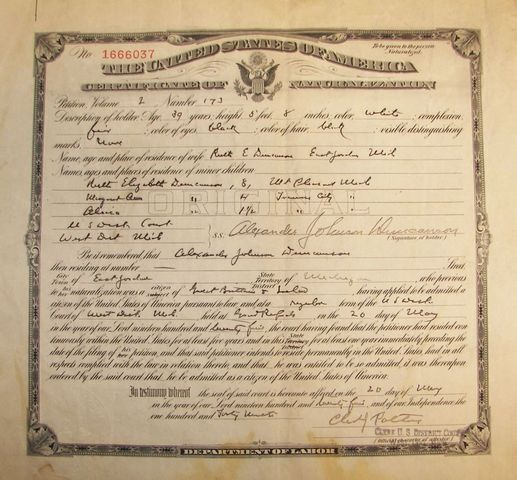 No 1666037
To be given to the person Naturalized.
THE UNITED STATES OF AMERICA
CERTIFICATE OF NATURALIZATION
Petition, Volume 2 Number 173
Description of holder: Age, 39 years; height, 5 feet, 8 inches; color, white; complexion,
fair; color of eyes, black; color of hair, blk; visible distinguishing
marks, None
Name, age and place of residence of wife Ruth E Duncanson East Jordan Mich
Names, ages and places of residence of minor children
Ruth Elizabeth Duncanson, 8, Mt Pleasant Mich
Margaret Ann " 4 Traverse City "
" 1½ " "
ORIGINAL
U S Dist Court
West Dist Mich S.S. Alexander Johnson Duncanson
(Signature of holder)
Be it remembered, that Alexander Johnson Duncanson
then residing at number Street,
City Town of East Jordan State Territory District of Michigan who previous
to his naturalization was a citizen subject of Great Britain & Ireland having applied to be admitted a
citizen of the United States of America pursuant to law, and at a regular term of the U S Dist
Court of West Dist Mich held at Grand Rapids on the 20 day of May
in the year of our Lord nineteen hundred and twenty five, the court having found that the petitioner had resided con
tinuously within the United States for at least five years and in this State Territory for at least one year immediately preceding the
date of the filing of his her petition, and that said petitioner intends to reside permanently in the United States, had in all
respects complied with the law in relation thereto, and that he was entitled to be so admitted, it was thereupon
ordered by the said court that he be admitted as a citizen of the United States of America.
In testimony whereof the seal of said court is hereunto affixed on the 20 day of May
in the year of our Lord nineteen hundred and twenty five, and of our Independence the
one hundred and forty ninth
CLERK U. S. DISTRICT COURT
(official character of attestor)
DEPARTMENT OF LABOR